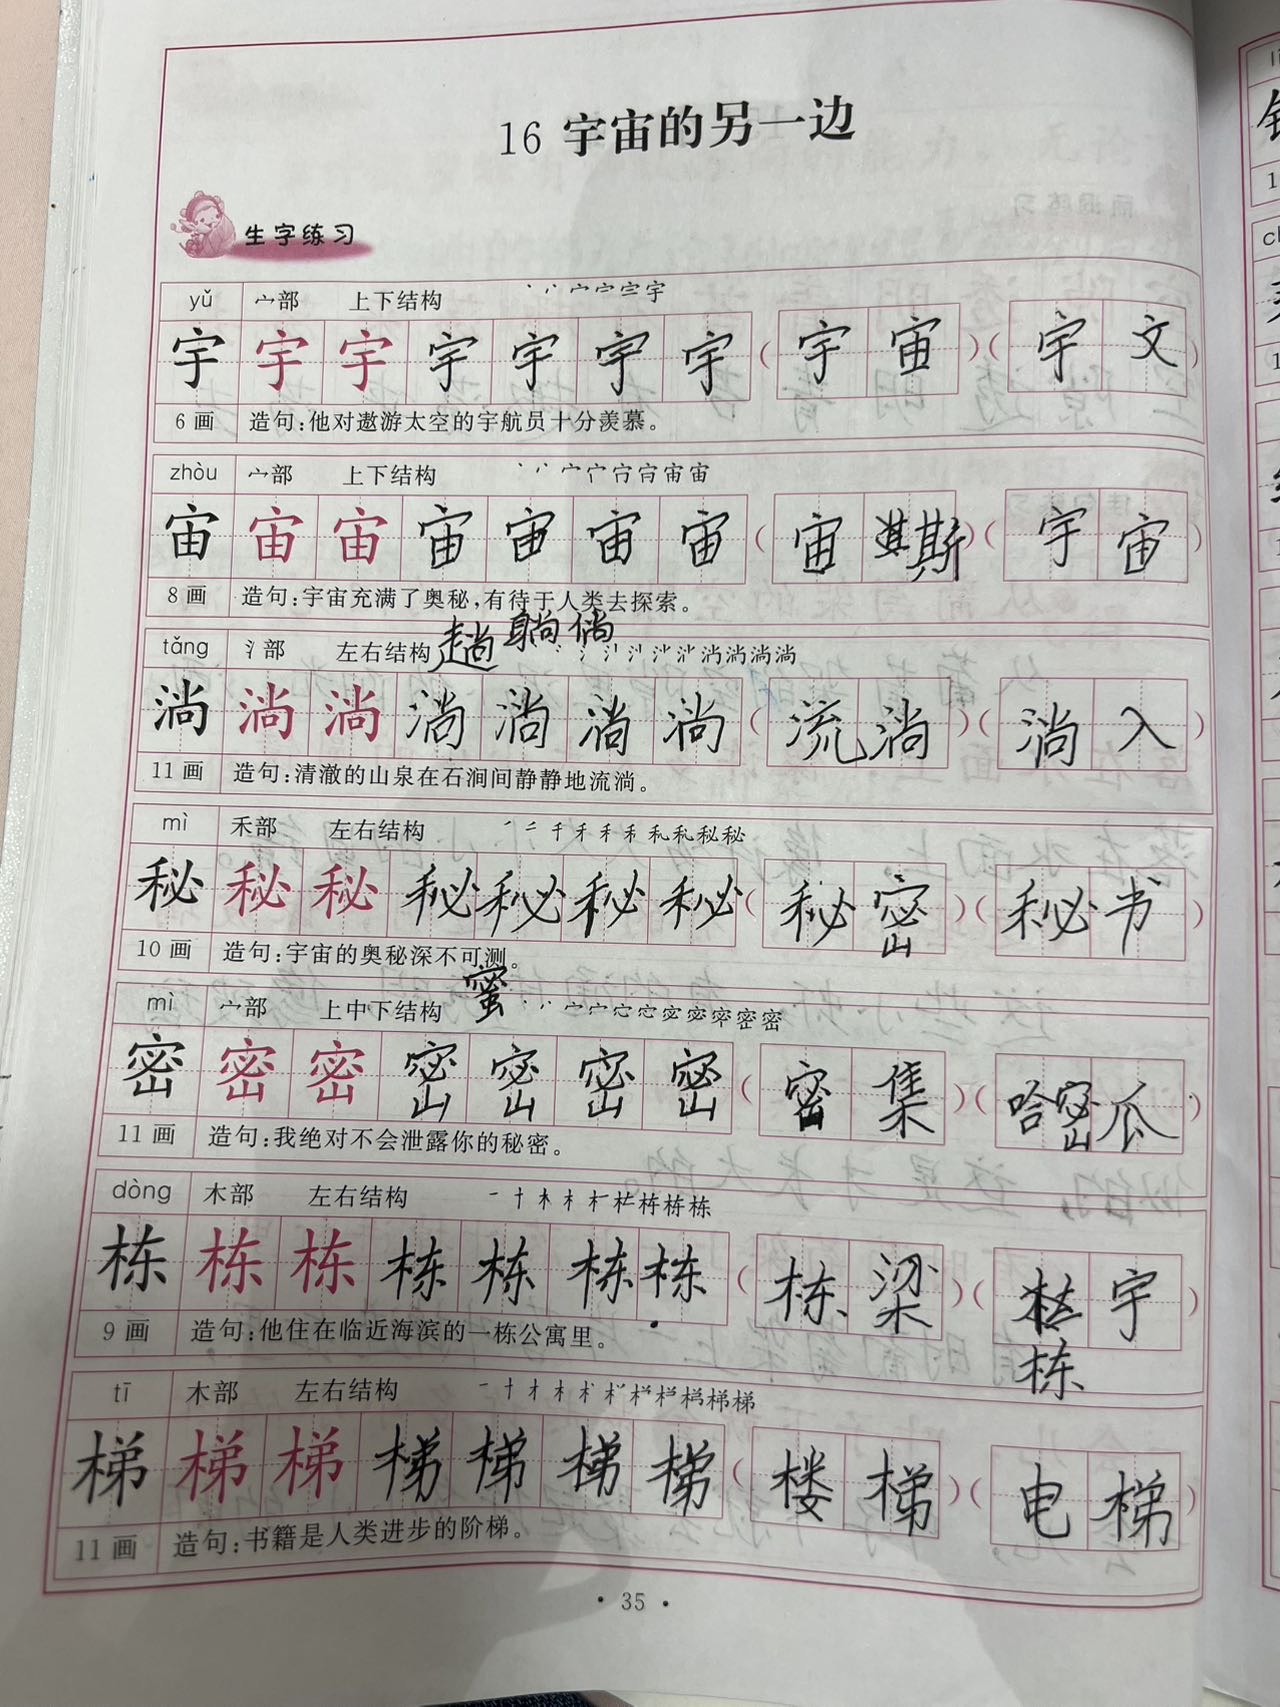 16 宇宙的另一边
生字练习
yǔ 宀部 上下结构 丶丷宀宀宇宇
宇 宇 宇 宇 宇 宇 宇 (宇宙) (宇文)
6画 造句:他对遨游太空的宇航员十分羡慕。
zhòu 宀部 上下结构
宙 宙 宙 宙 宙 宙 宙 (宙斯) (宇宙)
8画 造句:宇宙充满了奥秘,有待于人类去探索。
趟 躺 倘
tǎng 氵部 左右结构
淌 淌 淌 淌 淌 淌 淌 (流淌) (淌入)
11画 造句:清澈的山泉在石涧间静静地流淌。
mì 禾部 左右结构
秘 秘 秘 秘 秘 秘 秘 (秘密) (秘书)
10画 造句:宇宙的奥秘深不可测。
蜜
mì 宀部 上中下结构
密 密 密 密 密 密 密 (密集) (哈密瓜)
11画 造句:我绝对不会泄露你的秘密。
dòng 木部 左右结构
栋 栋 栋 栋 栋 栋 栋 (栋梁) (宇)
栋
9画 造句:他住在临近海滨的一栋公寓里。
tī 木部 左右结构
梯 梯 梯 梯 梯 梯 梯 (楼梯) (电梯)
11画 造句:书籍是人类进步的阶梯。
· 35 ·